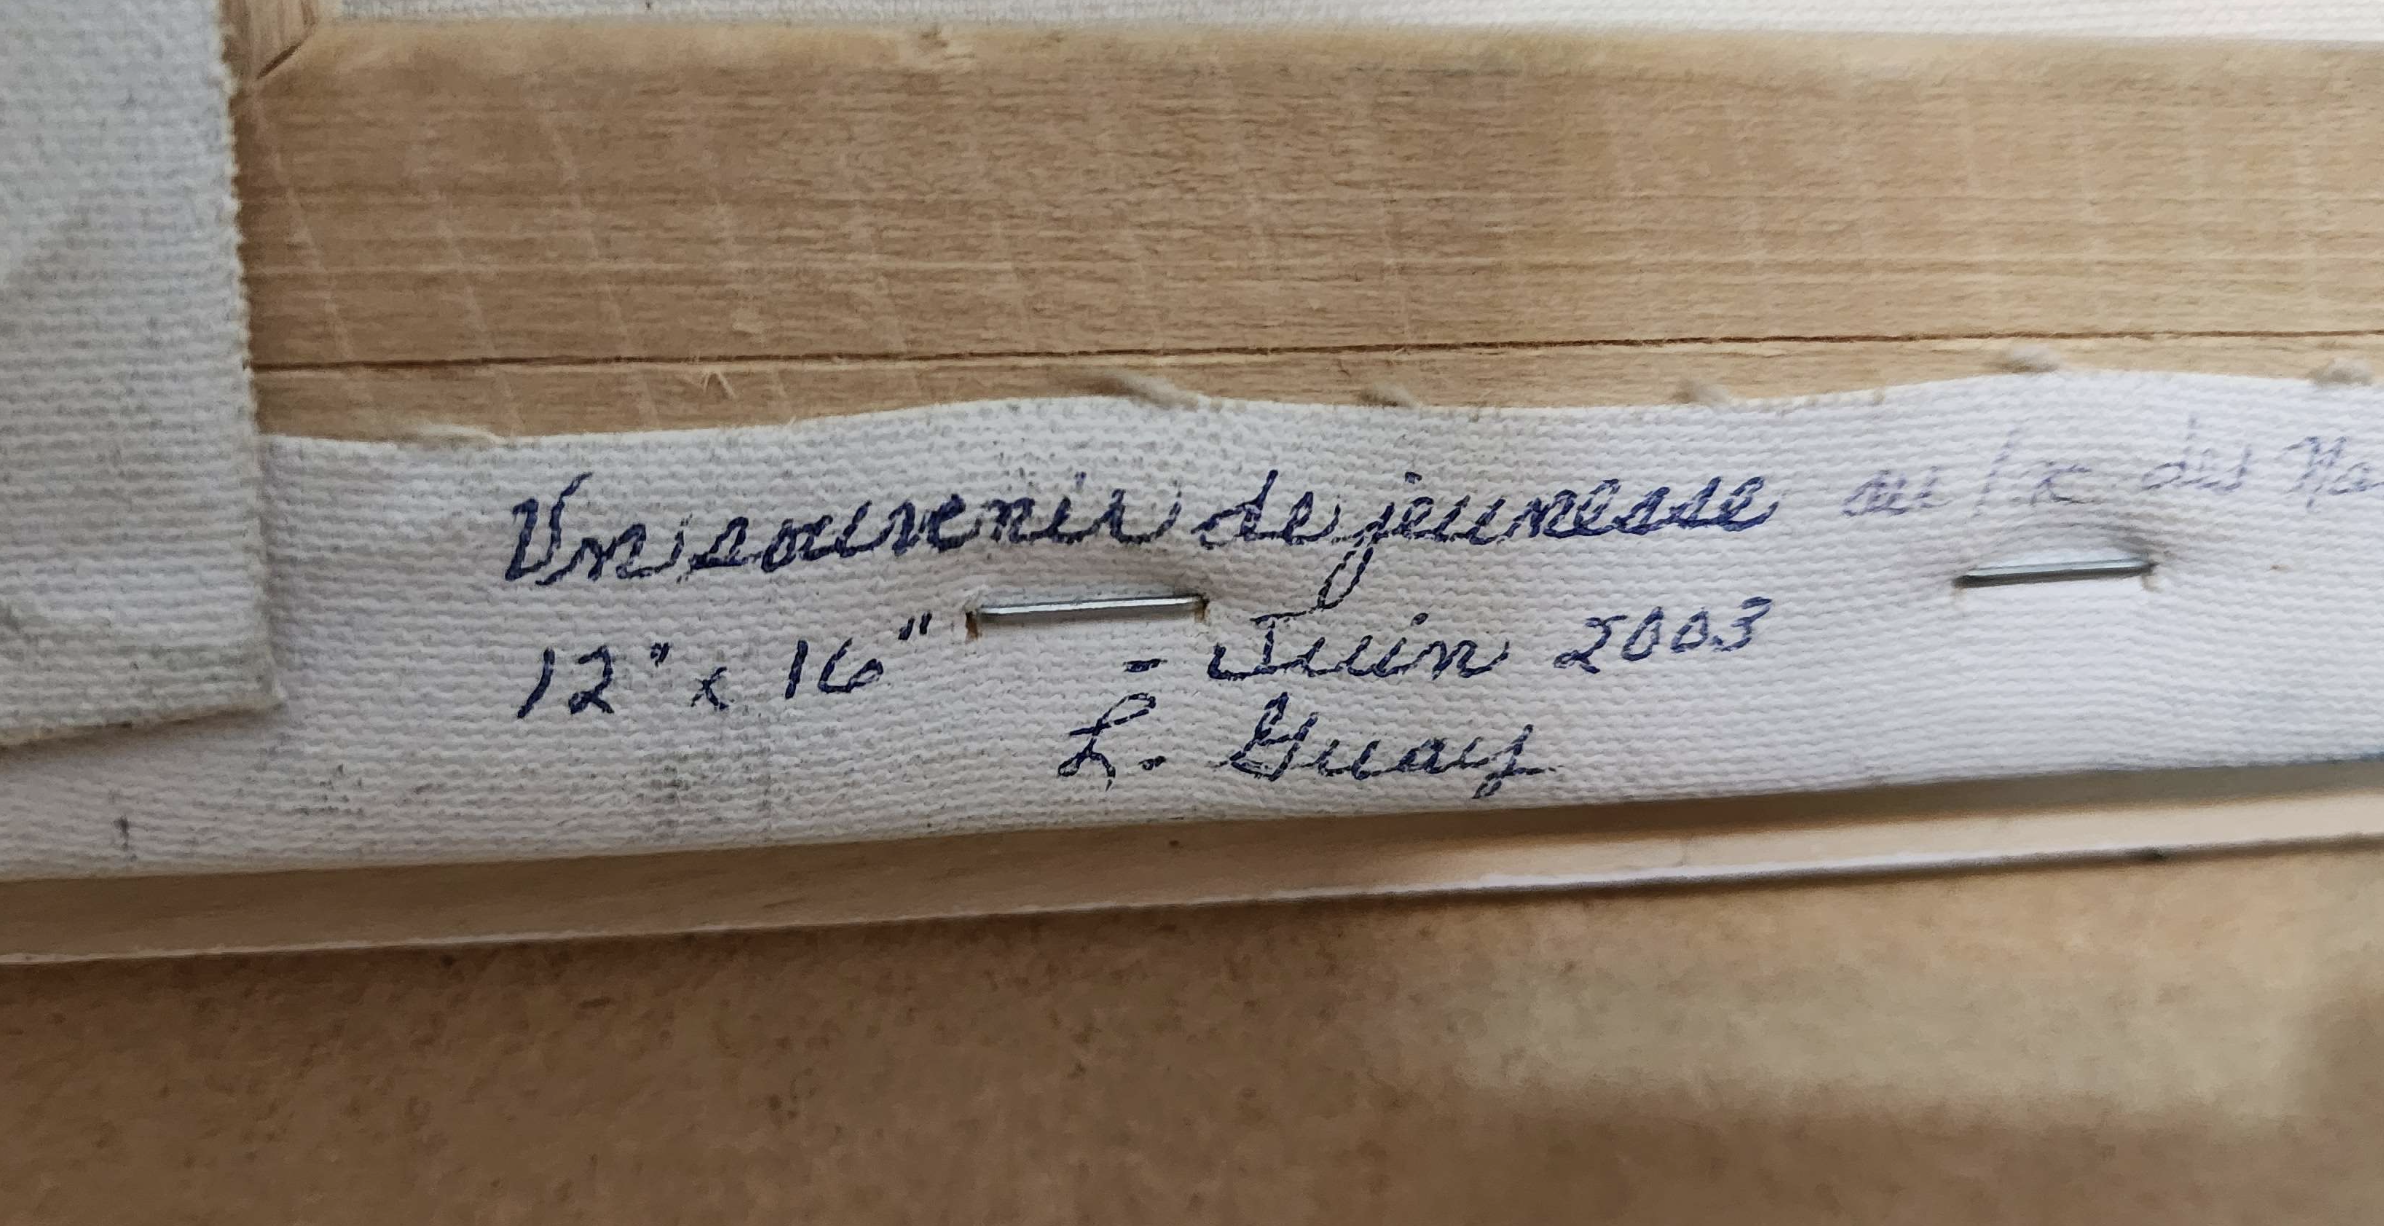 Un souvenir de jeunesse au des
12" x 16" - Juin 2003
L. Guay